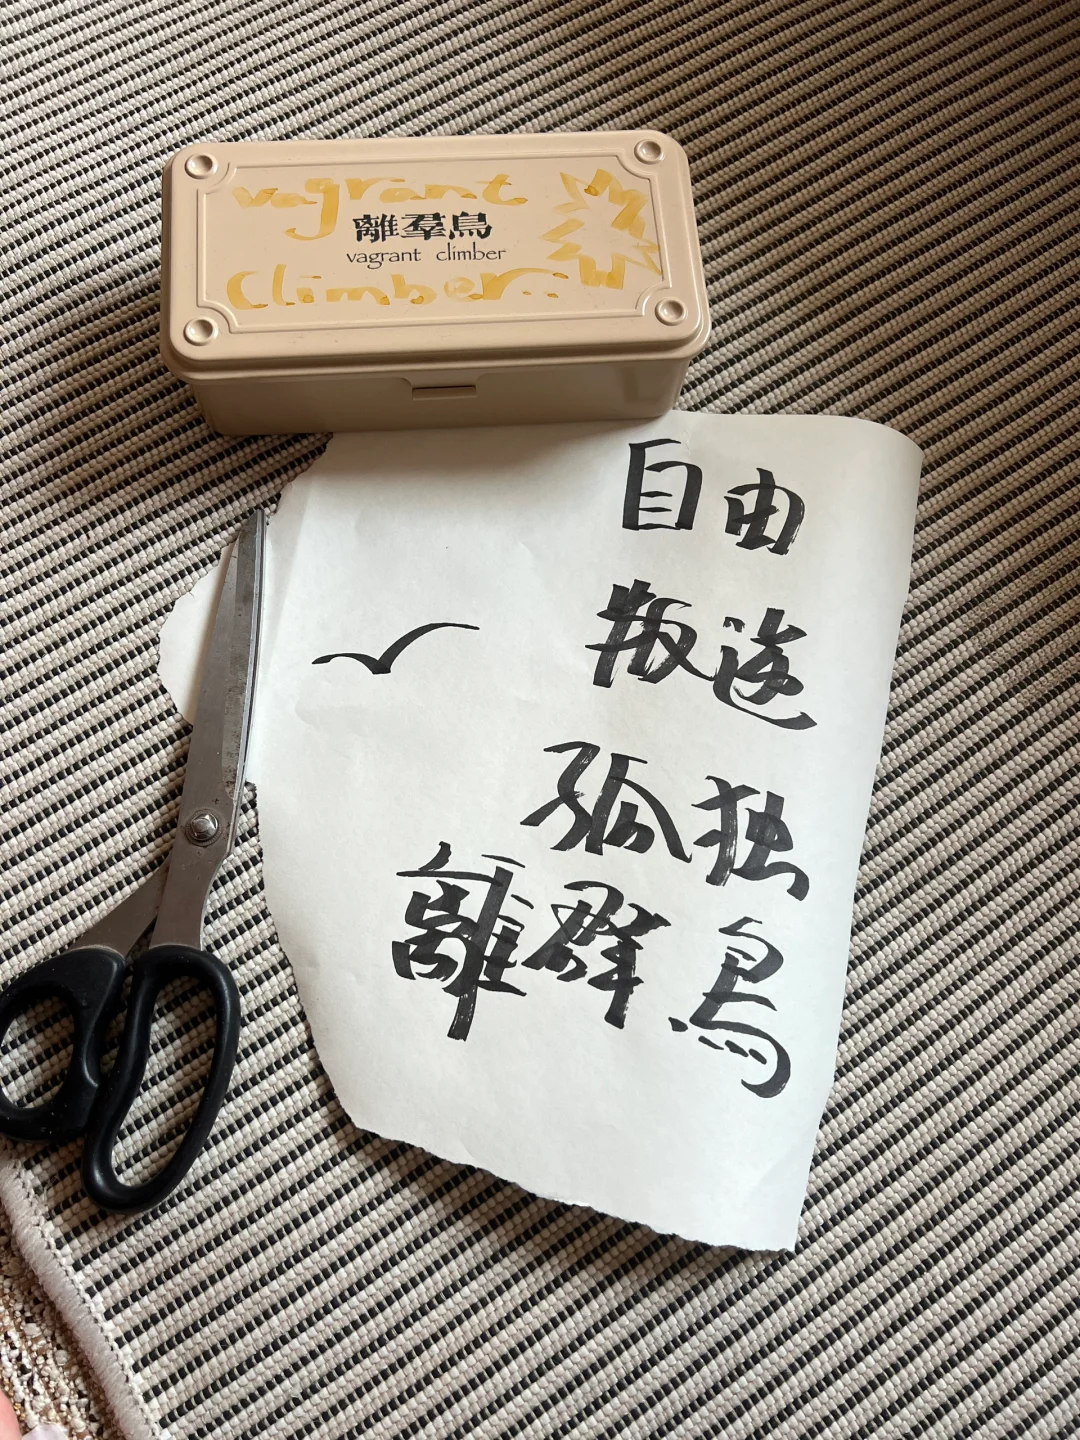 vagrant
離羣鳥
vagrant climber
Climber...
自由
叛逆
孤独
離群鳥